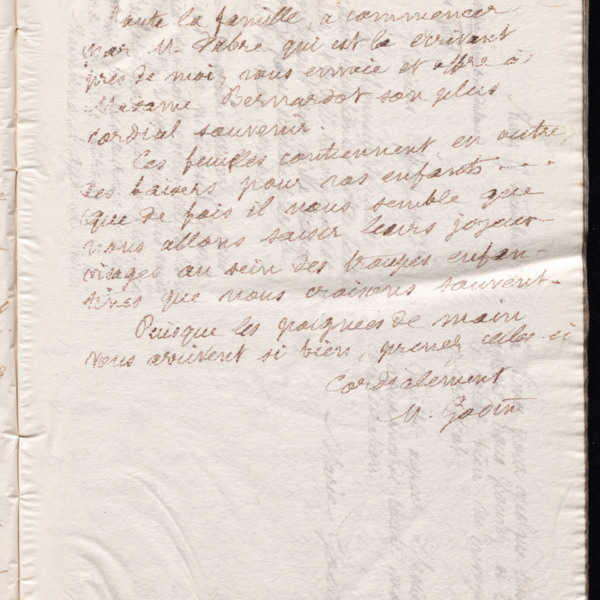 Toute la famille, à commencer
par M. Fabre qui est là écrivant
près de moi, vous envoie et offre à
Madame Bernardot son plus
cordial souvenir.
Ces feuilles contiennent en outre
des baisers pour vos enfants - - -
Que de fois il nous semble que
nous allons saisir leurs joyeux
visages au sein des troupes enfan-
tines que nous croisons souvent.
Puisque les poignées de main
vous arrivent si bien, prenez celles-ci
Cordialement
M. Godin